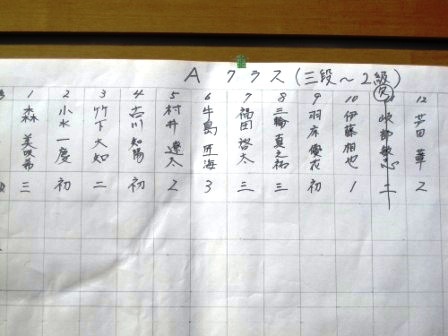 Aクラス(三段～2級)
1 森 美咲希 三
2 小水 一慶 初
3 竹下 大知 二
4 古川 知陽 初
5 村井 遼太 2
6 牛島 匠海 3
7 福田 啓太 三
8 三輪 真之祐 三
9 羽床 優花 初
10 伊藤 相也 1
欠 敏志 二
12 芦田 華 2